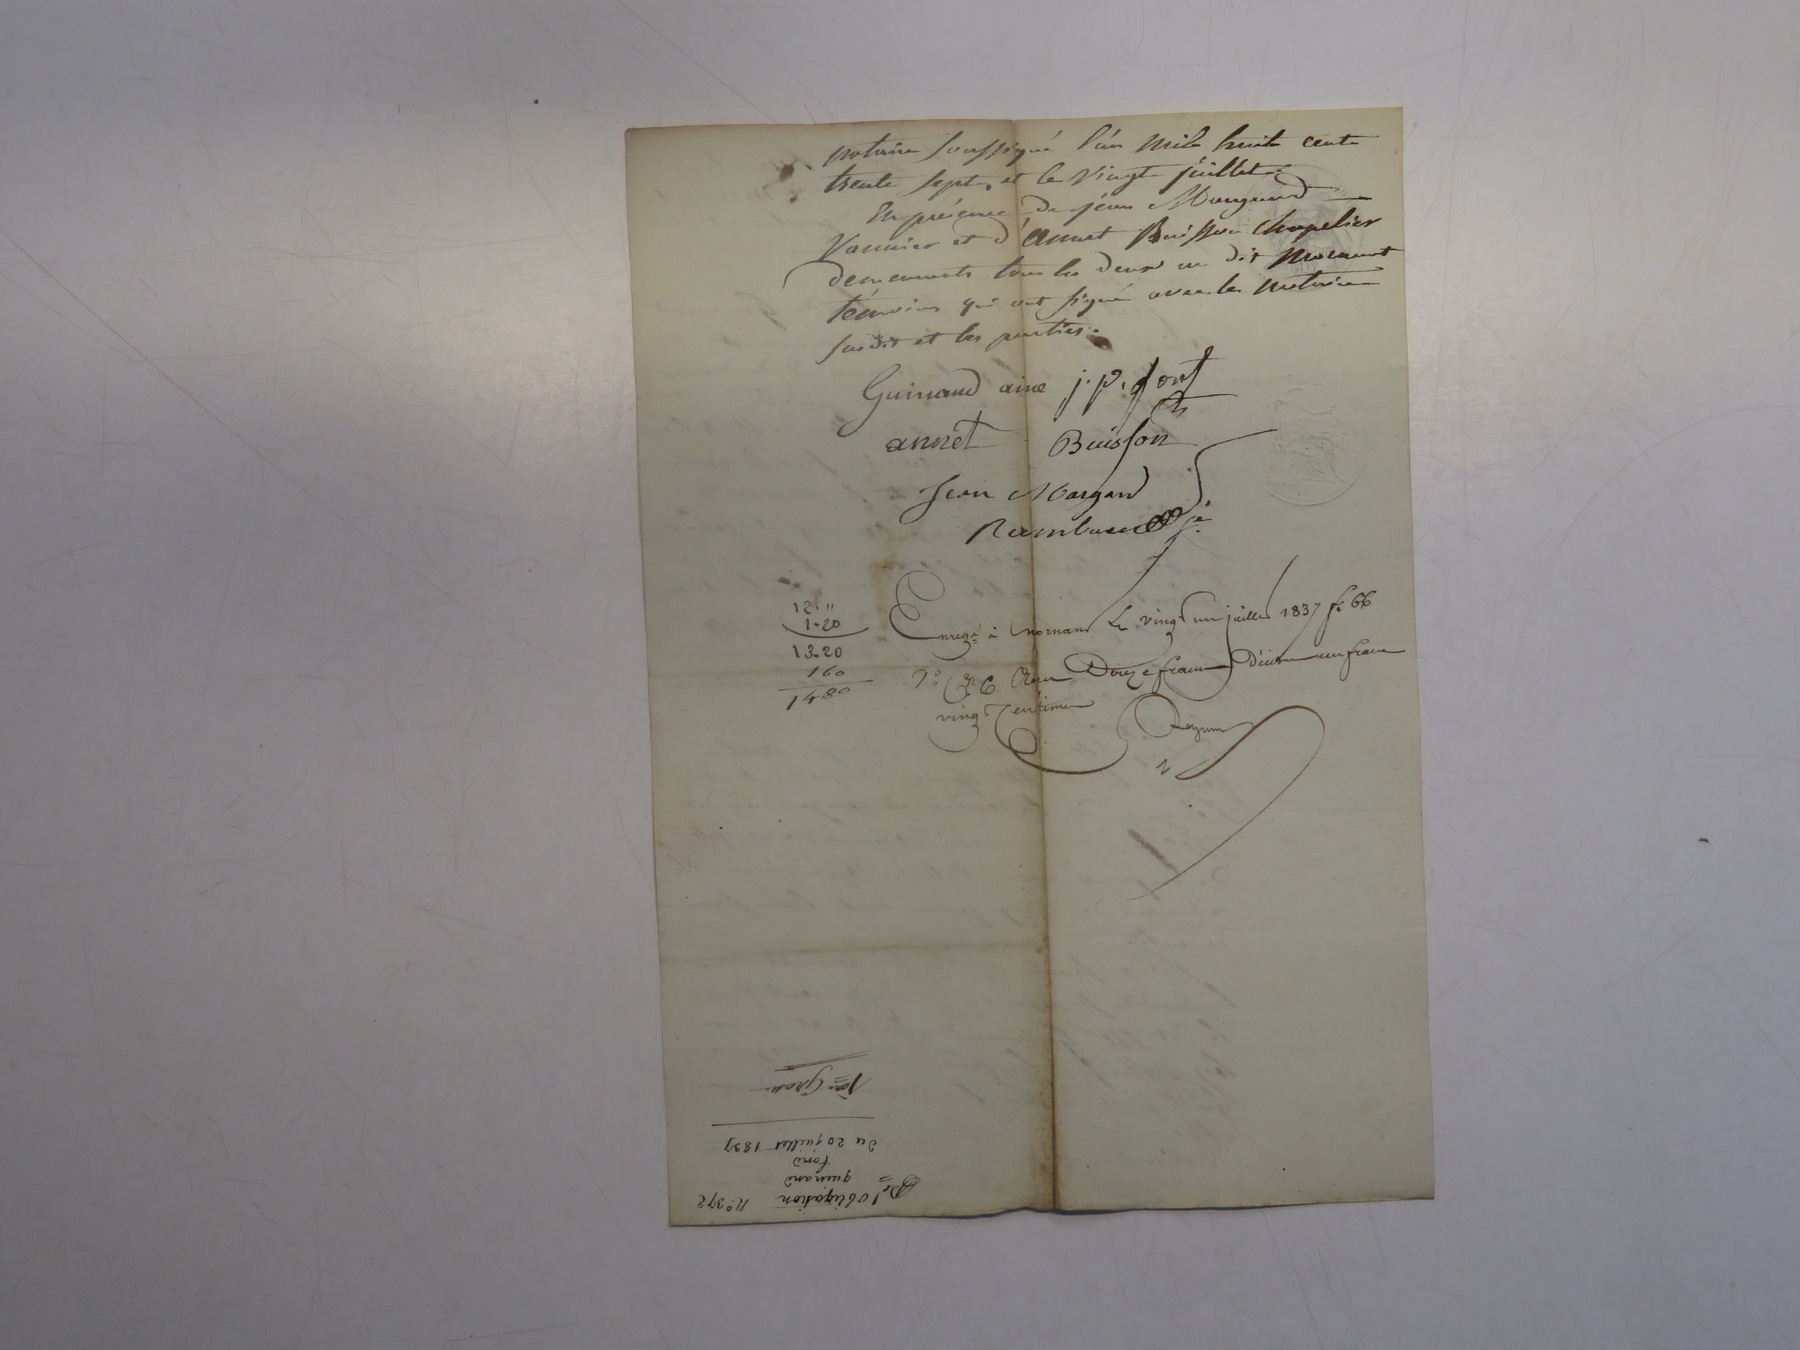 notaire soussigné l'an mile huit cents
trente sept, et le vingt juillet.
En présence de jean Margand
Vannier et d'annet Buisson chapelier
demeurants tous les deux au dit Mornant
témoins qui ont signé avec les notaire
susdit et les parties.
Guinand ainé j. p. font
annet Buisson
Jean Margand
12."
1-20
13-20
160
1480
Enregé à mornant Le vingt un juillet 1837 fº 66
Vº Douze francs Décime un franc
vingt Centimes
1ere Grosse
du 20 juillet 1837
fond
guinand
Obligation Nº 372